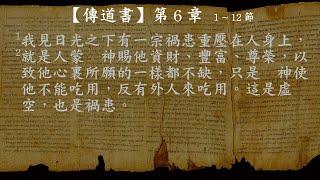 【傳道書】第 6 章 1～12 節
1 我見日光之下有一宗禍患重壓在人身上，
2 就是人蒙　神賜他資財、豐富、尊榮，以
致他心裏所願的一樣都不缺，只是　神使
他不能吃用，反有外人來吃用。這是虛
空，也是禍患。